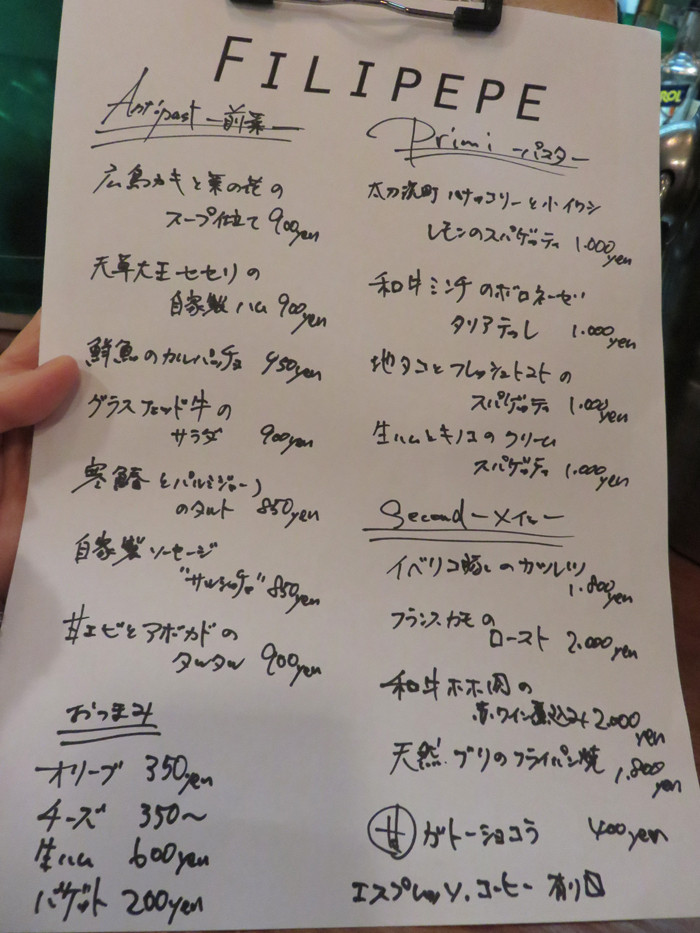 FILIPEPE
Antipast ー前菜ー
広島カキと菜の花の
スープ仕立て 900yen
天草大王セセリの
自家製ハム 900yen
鮮魚のカルパッチョ 950yen
グラスフェッド牛の
サラダ 900yen
寒鰆とパルミジャーノ
のタルト 850yen
自家製ソーセージ
"サルシッチャ" 850yen
甘エビとアボカドの
タルタル 900yen
おつまみ
オリーブ 350yen
チーズ 350〜
生ハム 600yen
バゲット 200yen
Primi ーパスター
太刀洗町 バナッコリーと小イワシ
レモンのスパゲッティ 1.000yen
和牛ミンチのボロネーゼ
タリアテッレ 1.000yen
地タコとフレッシュトマトの
スパゲッティ 1.000yen
生ハムとキノコのクリーム
スパゲッティ 1.000yen
Second ーメインー
イベリコ豚のカツレツ
1.800yen
フランスカモの
ロースト 2.000yen
和牛ホホ肉の
赤ワイン煮込み 2.000yen
天然ブリのフライパン焼 1.800yen
甘 ガトーショコラ 400yen
エスプレッソ、コーヒー 有り